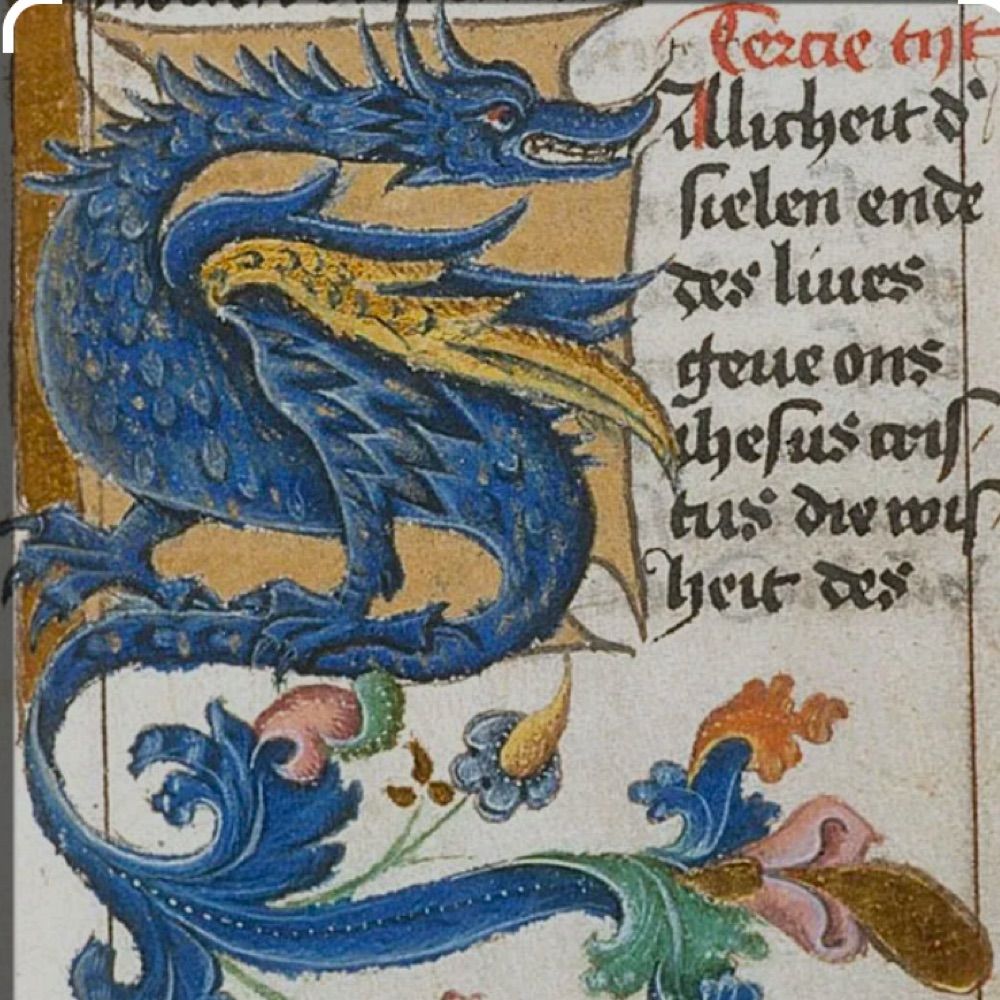 Tercie tijt
Allicheit d'
sielen ende
des liues
geue ons
ihesus cris
tus die wijs
heit des